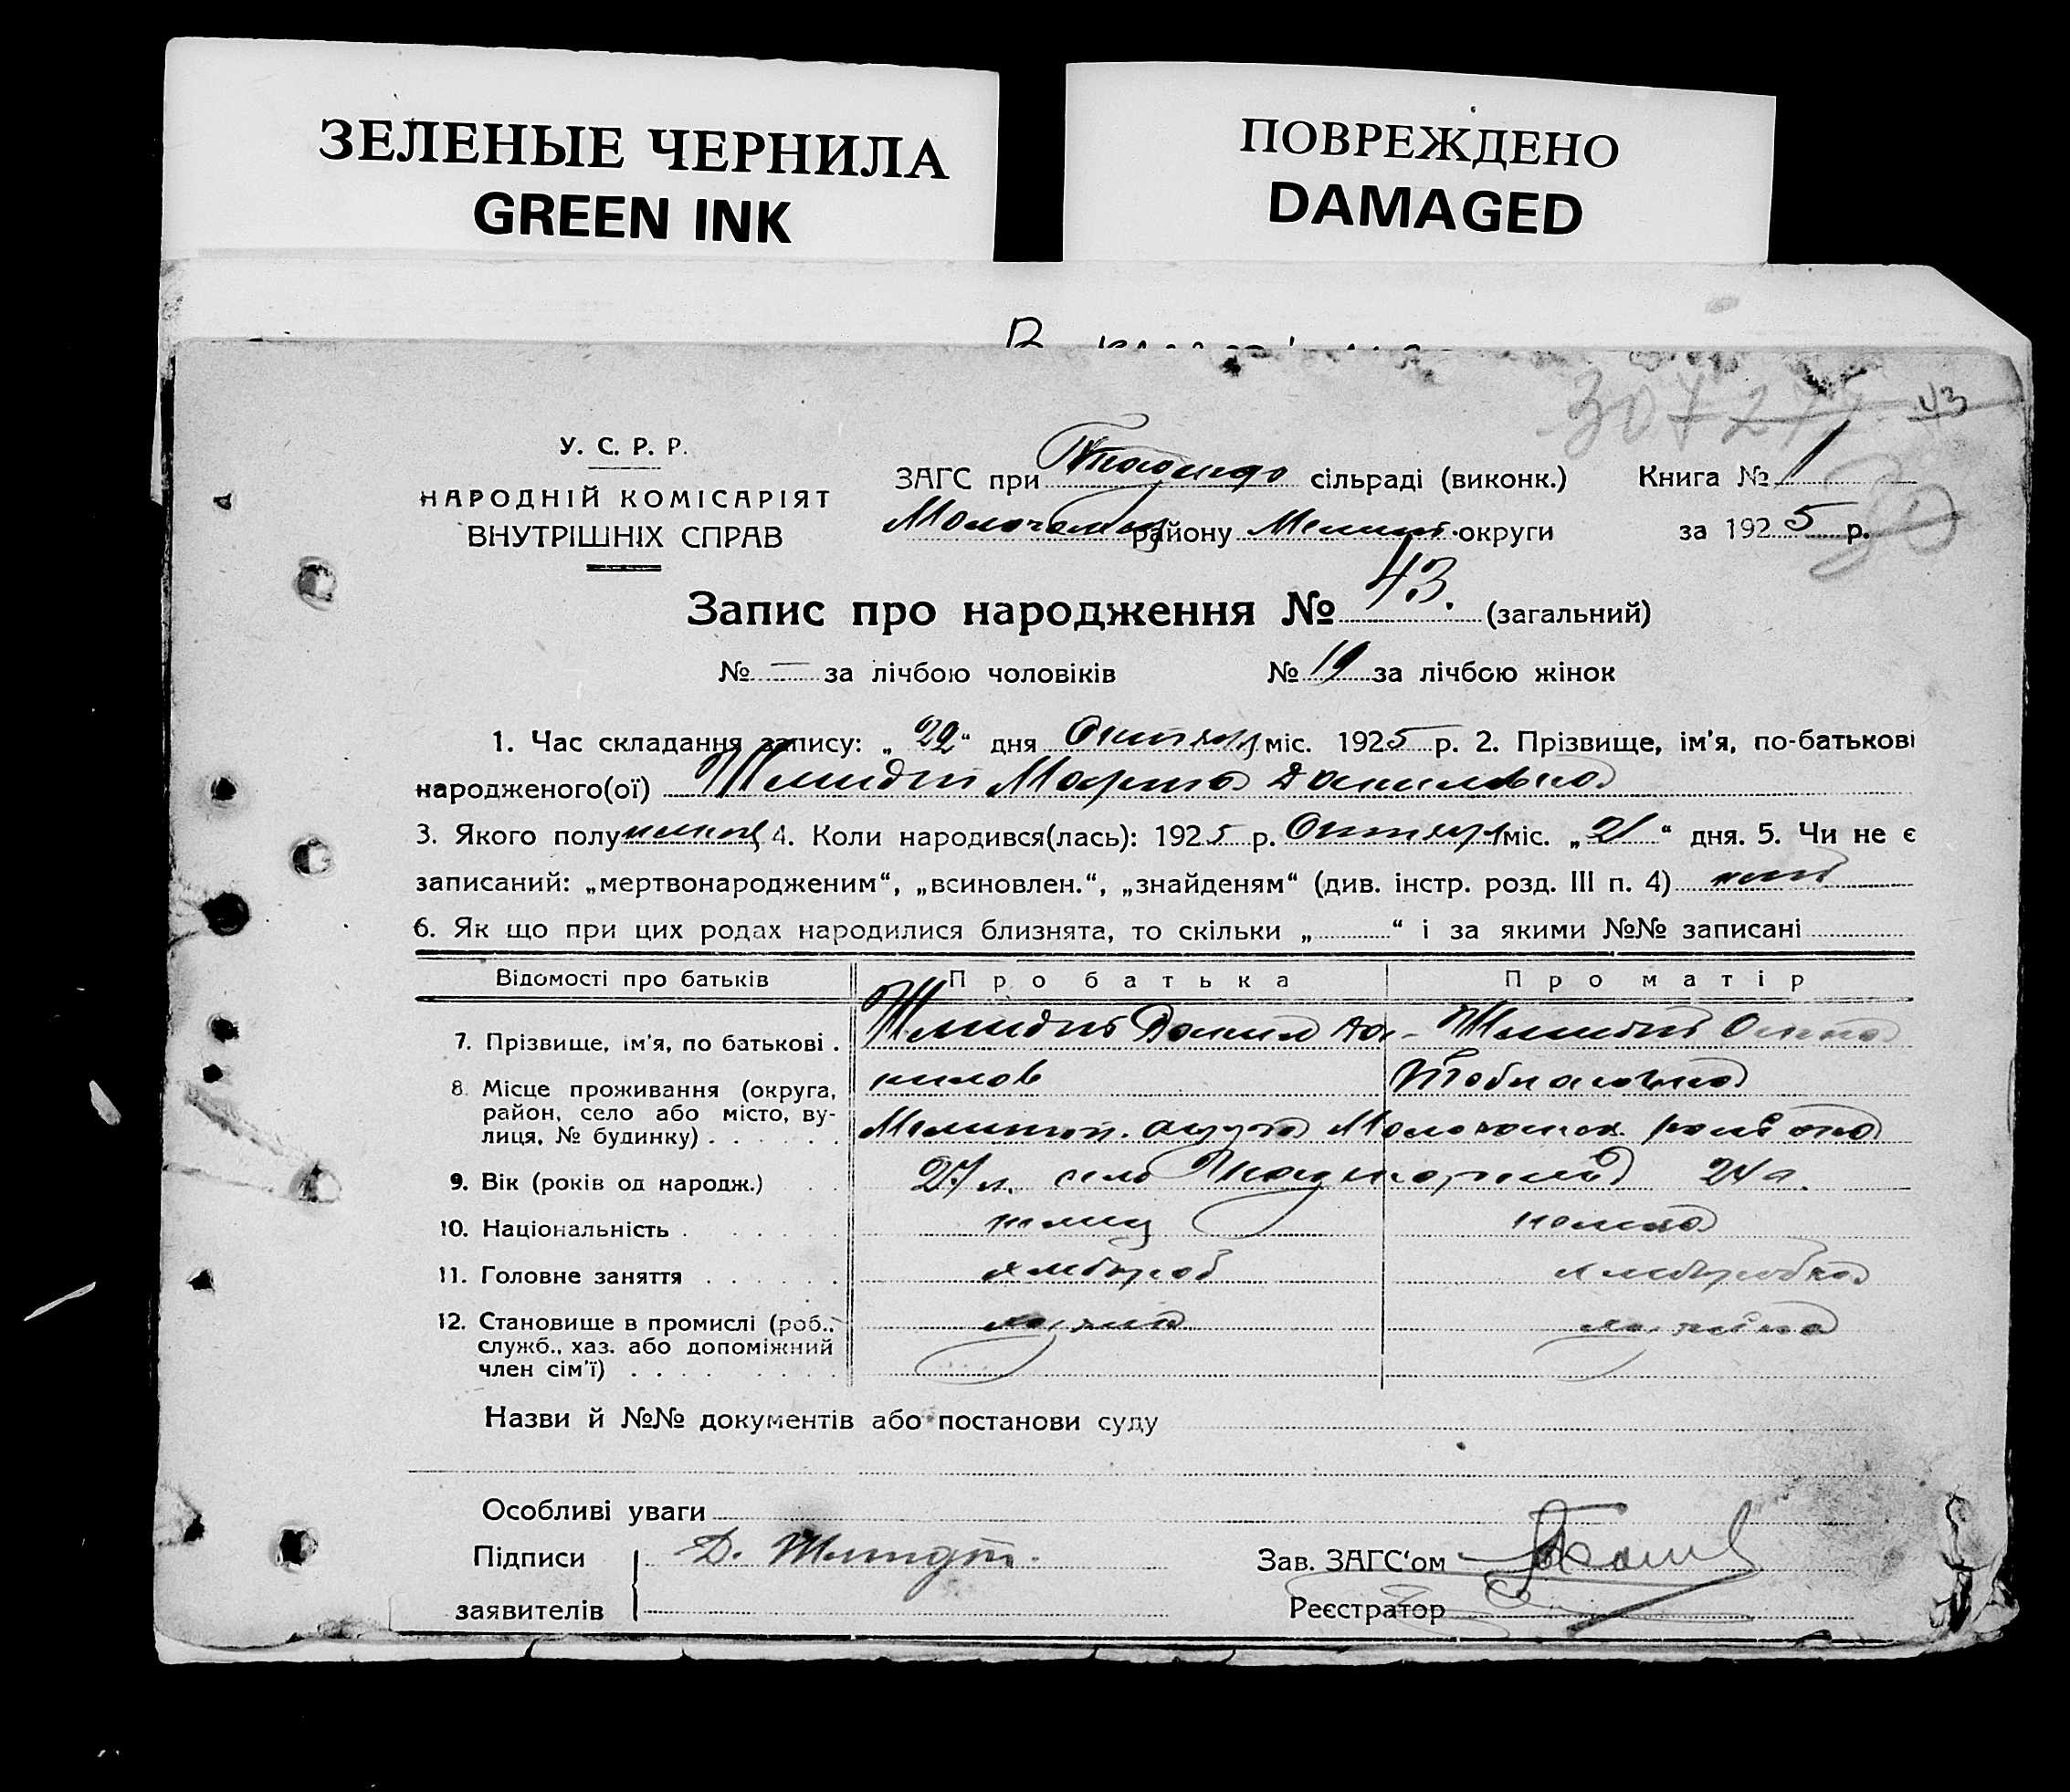 ЗЕЛЕНЫЕ ЧЕРНИЛА
GREEN INK
ПОВРЕЖДЕНО
DAMAGED
307 277 43
У. С. Р. Р.
НАРОДНІЙ КОМІСАРІЯТ
ВНУТРІШНІХ СПРАВ
ЗАГС при сільраді (виконк.)
району Мелит. округи
Книга № 1
за 1925 р.
30
Запис про народження № 43. (загальний)
№ — за лічбою чоловіків № 19 за лічбою жінок
1. Час складання запису: „22“ дня Октября міс. 1925 р. 2. Прізвище, ім'я, по-батькові
народженого(ої) Шмидт Марта Даниловна
3. Якого полу 4. Коли народився(лась): 1925 р. Октября міс. „21“ дня. 5. Чи не є
записаний: „мертвонародженим“, „всиновлен.“, „знайденям“ (див. інстр. розд. III п. 4) нет
6. Як що при цих родах народилися близнята, то скільки „ “ і за якими №№ записані
Відомості про батьків Про батька Про матір
7. Прізвище, ім'я, по батькові . Шмидт Данил Да- Шмидт
нилов
8. Місце проживання (округа,
район, село або місто, ву-
лиця, № будинку) . . . . . . Мелитоп. округа района
9. Вік (років од народж.) . . 27 л. село 24 л.
10. Національність . . . . . . немец немка
11. Головне заняття . . . . . . хлебороб хлеборобка
12. Становище в промислі (роб.,
служб., хаз. або допоміжний
член сім'ї) . . . . . . хозяин хозяйка
Назви й №№ документів або постанови суду
Особливі уваги
Підписи
заявителів
Д. Шмидт.
Зав. ЗАГС'ом
Реєстратор